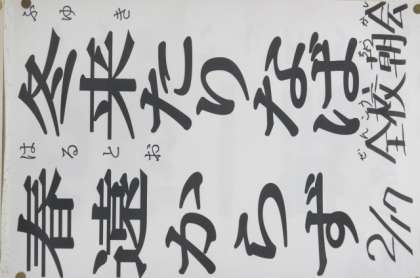 ふゆき
冬来たりなば
はるとお
春遠からず
ぜんこうちょうかい
全校朝会
2/17